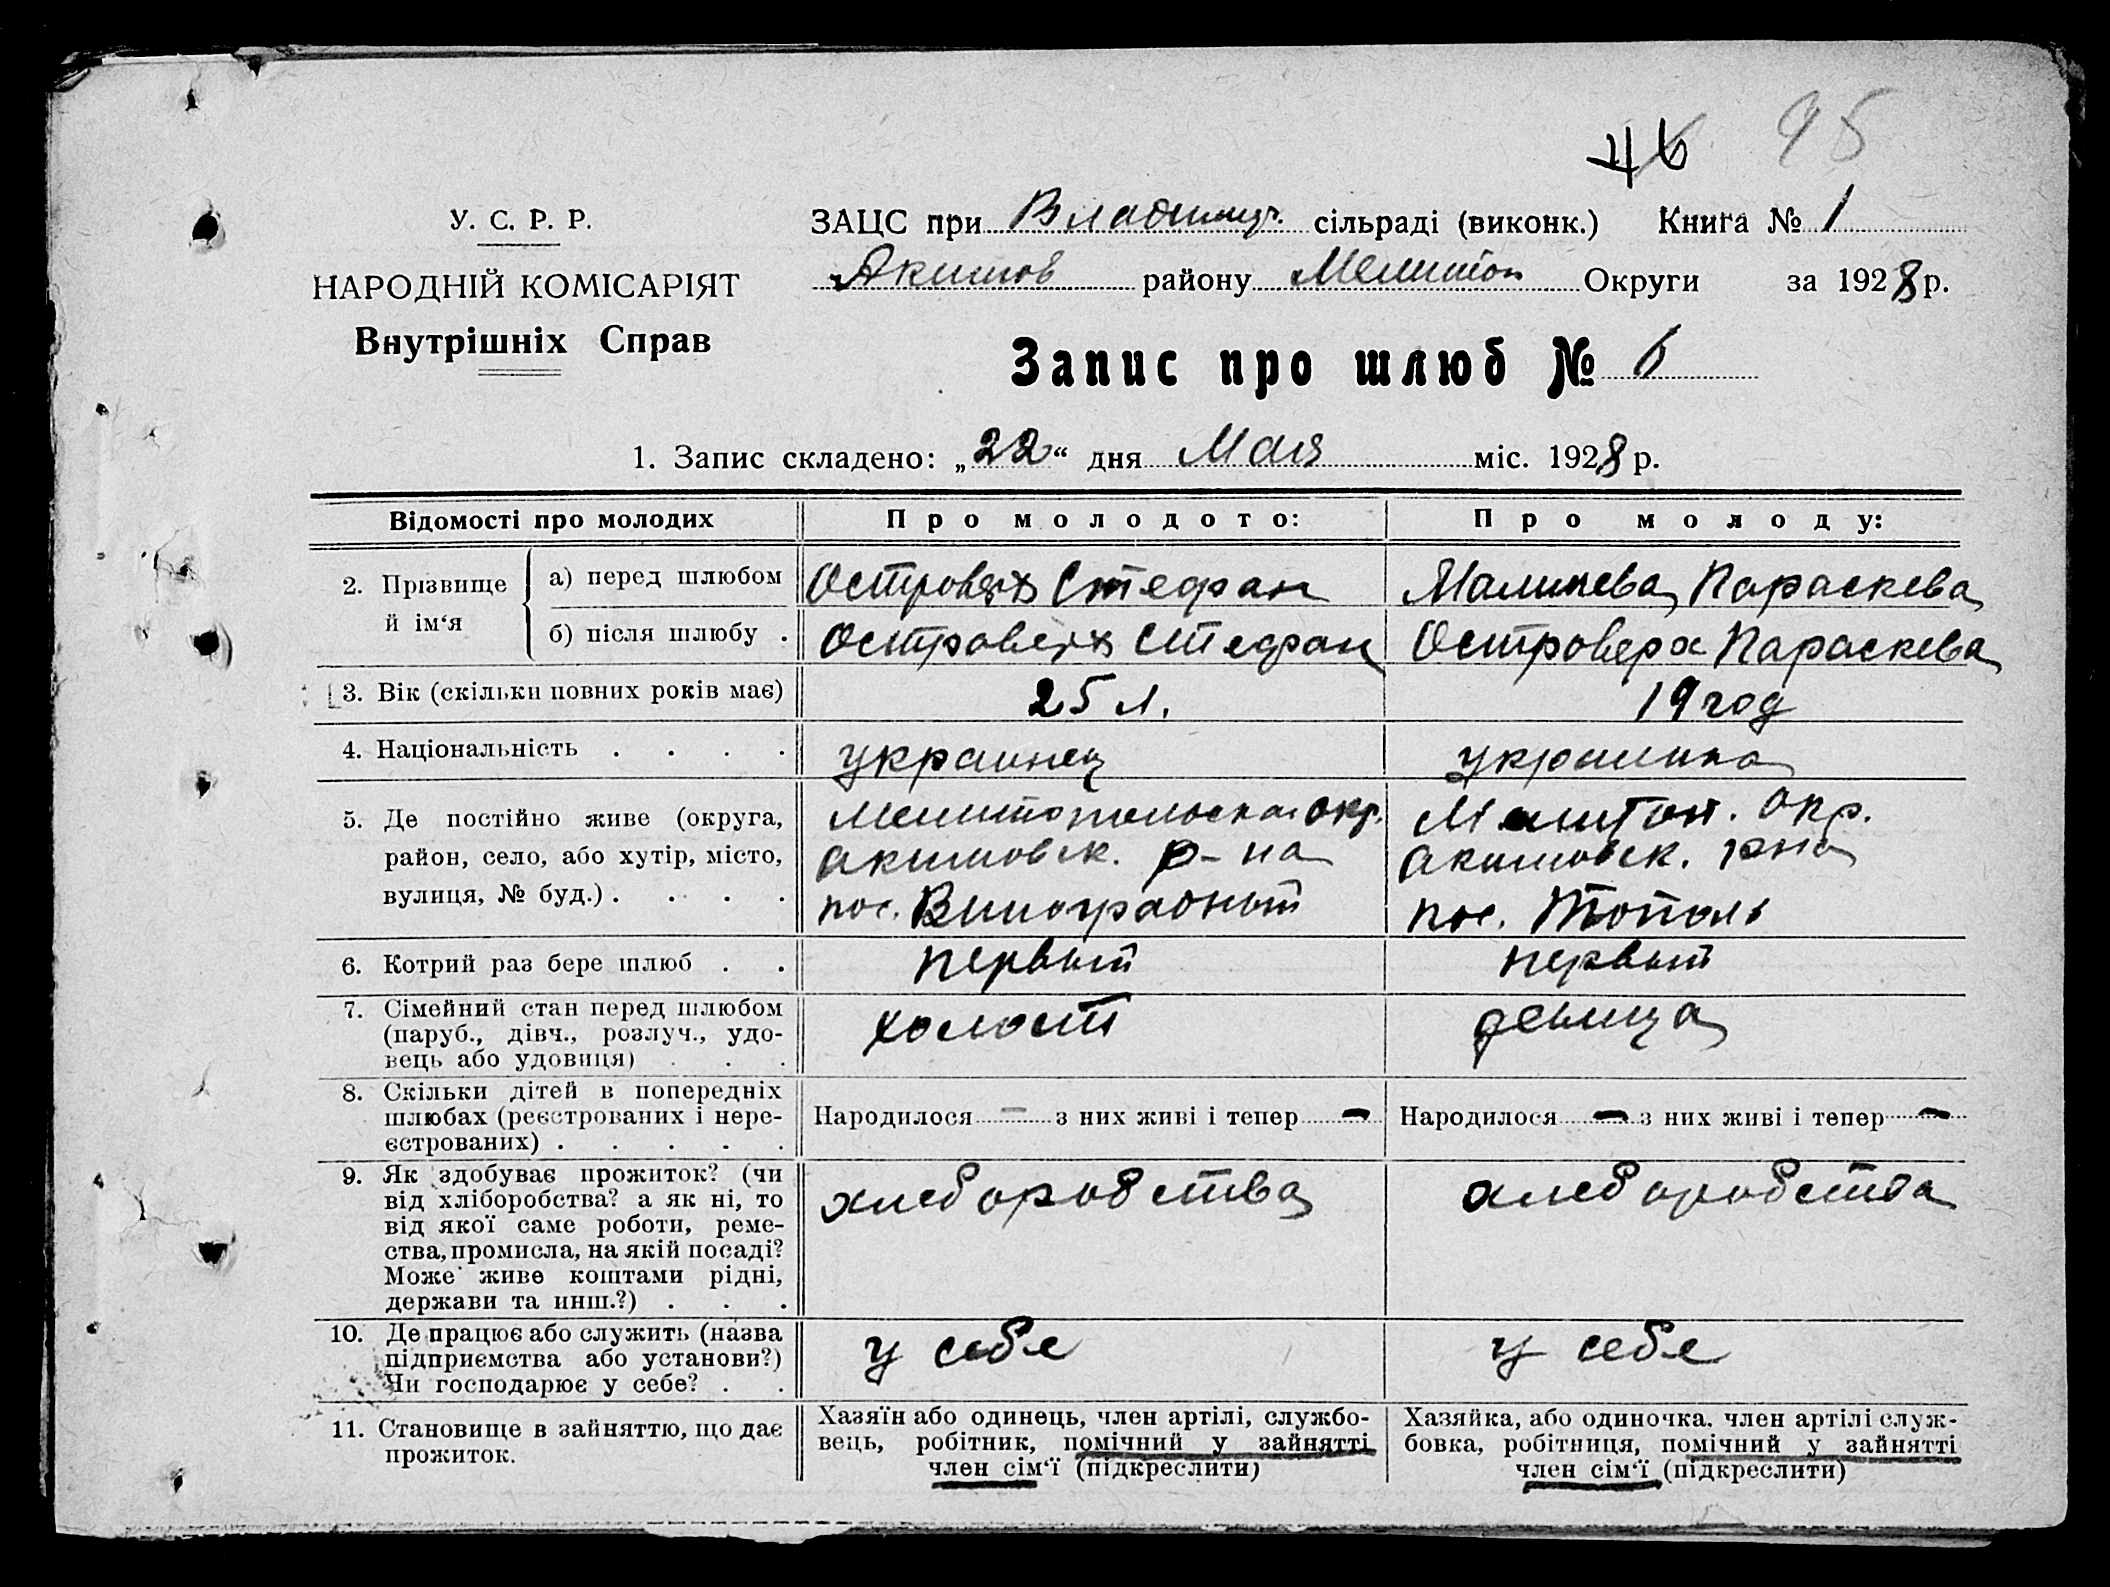 46 95
У. С. Р. Р.
НАРОДНІЙ КОМІСАРІЯТ
Внутрішніх Справ
ЗАЦС при Владимир. сільраді (виконк.) Книга № 1
Акимов району Мелитоп Округи за 1928 р.
Запис про шлюб № 6
1. Запис складено: „22“ дня Мая міс. 1928 р.
Відомості про молодих
Про молодого:
Про молоду:
2. Прізвище й ім‘я
а) перед шлюбом
Островерх Стефан
Малинева Параскева
б) після шлюбу .
Островерх Стефан
Островерх Параскева
3. Вік (скільки повних років має)
25 л.
19 год
4. Національність . . . .
украинец
украинка
5. Де постійно живе (округа,
район, село, або хутір, місто,
вулиця, № буд.) . . . .
Мелитопольская окр.
Акимовск. р-на
пос. Виноградный
Мелитоп. Окр.
Акимовск. рна
пос. Тополь
6. Котрий раз бере шлюб . .
первый
первый
7. Сімейний стан перед шлюбом
(паруб., дівч., розлуч., удо-
вець або удовиця) . . .
холост
девица
8. Скільки дітей в попередніх
шлюбах (реєстрованих і нере-
єстрованих) . . . . .
Народилося — з них живі і тепер —
Народилося — з них живі і тепер —
9. Як здобуває прожиток? (чи
від хліборобства? а як ні, то
від якої саме роботи, реме-
ства, промисла, на якій посаді?
Може живе коштами рідні,
держави та инш.?) . . .
хлеборобства
хлеборобства
10. Де працює або служить (назва
підприємства або установи?)
Чи господарює у себе? . .
у себе
у себе
11. Становище в зайняттю, що дає
прожиток.
Хазяїн або одинець, член артілі, службо-
вець, робітник, помічний у зайнятті
член сім‘ї (підкреслити)
Хазяйка, або одиночка, член артілі служ-
бовка, робітниця, помічний у зайнятті
член сім‘ї (підкреслити)